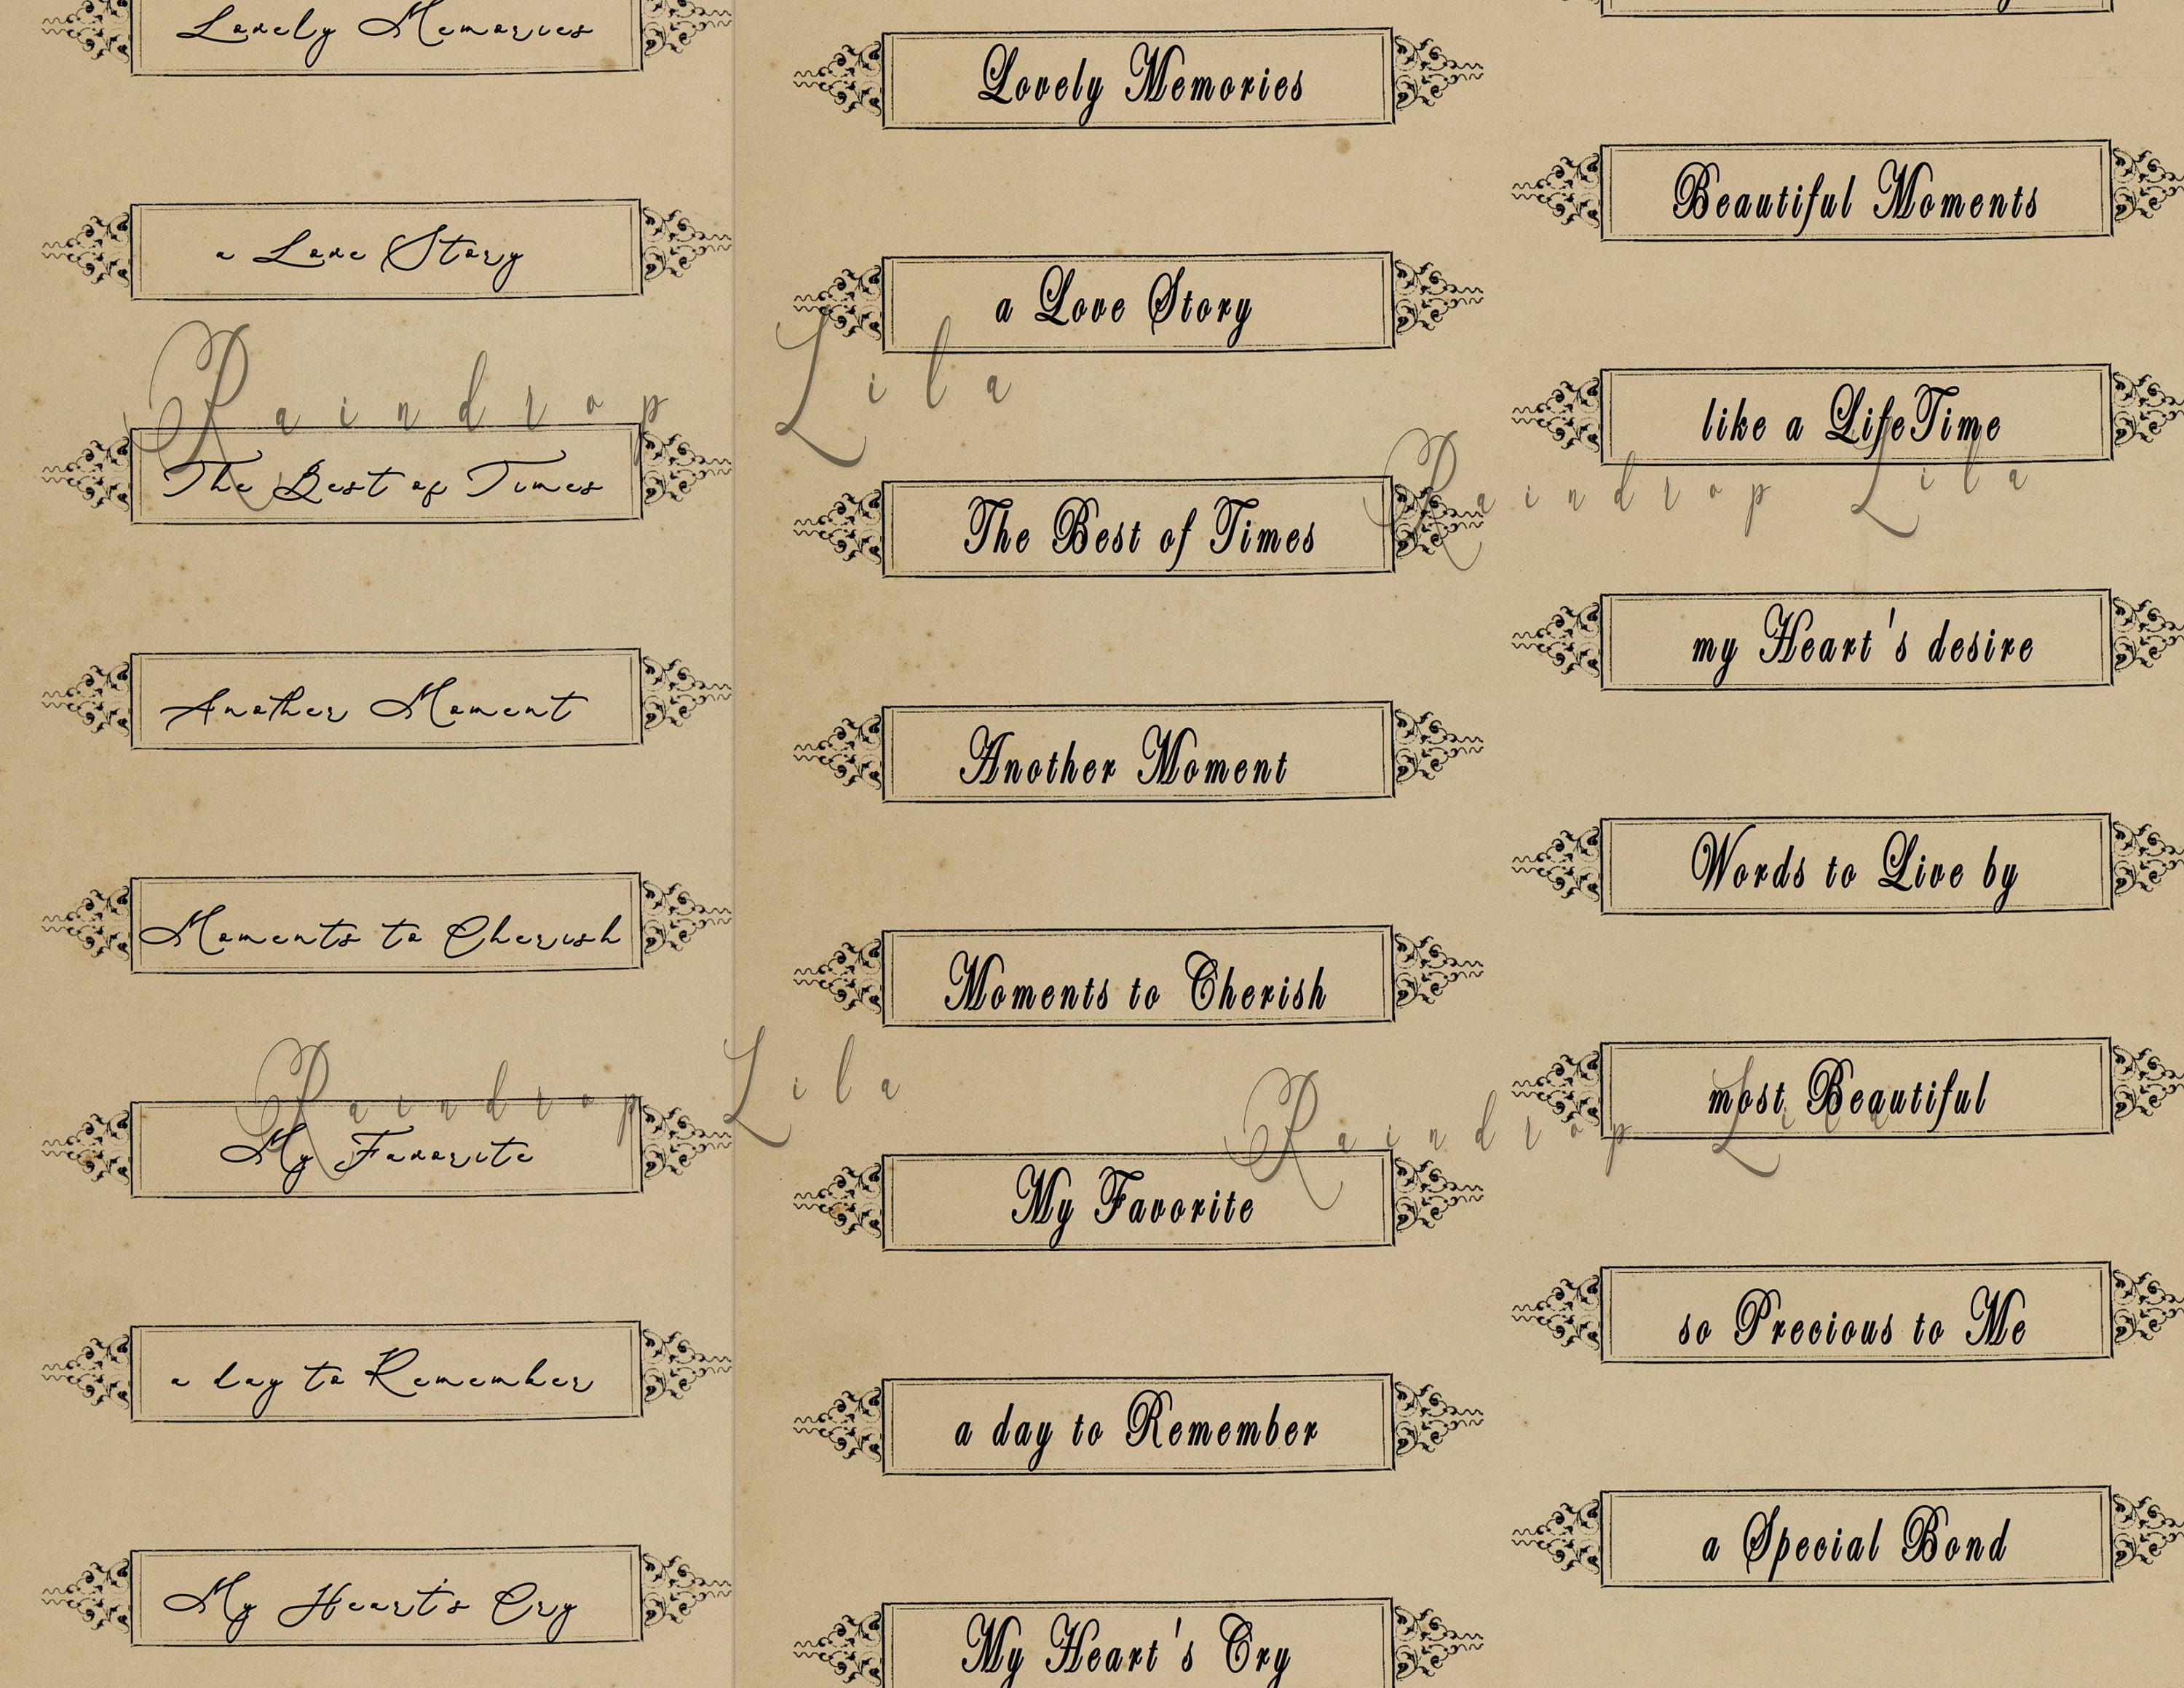 Lovely Memories
a Love Story
The Best of Times
Another Moment
Moments to Cherish
My Favorite
a day to Remember
My Heart's Cry
Lovely Memories
a Love Story
The Best of Times
Another Moment
Moments to Cherish
My Favorite
a day to Remember
My Heart's Cry
Beautiful Moments
like a LifeTime
my Heart's desire
Words to Live by
most Beautiful
so Precious to Me
a Special Bond
Raindrop Lila
Raindrop Lila
Raindrop Lila
Raindrop Lila